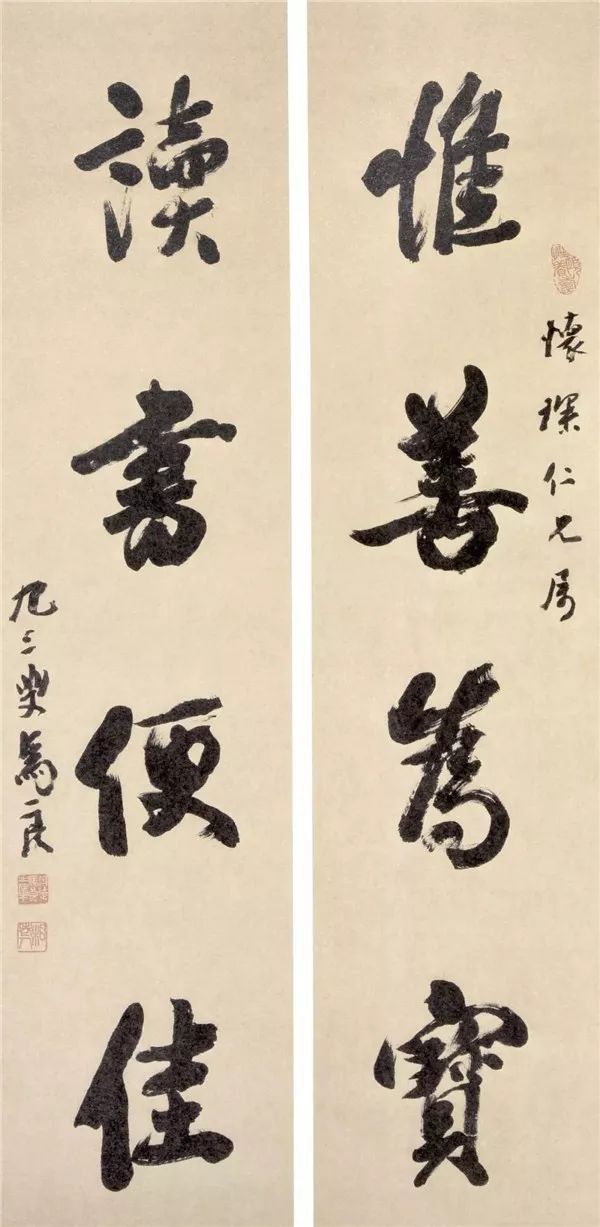 懷琛仁兄属
惟善爲寶
讀書便佳
九三叟馬良